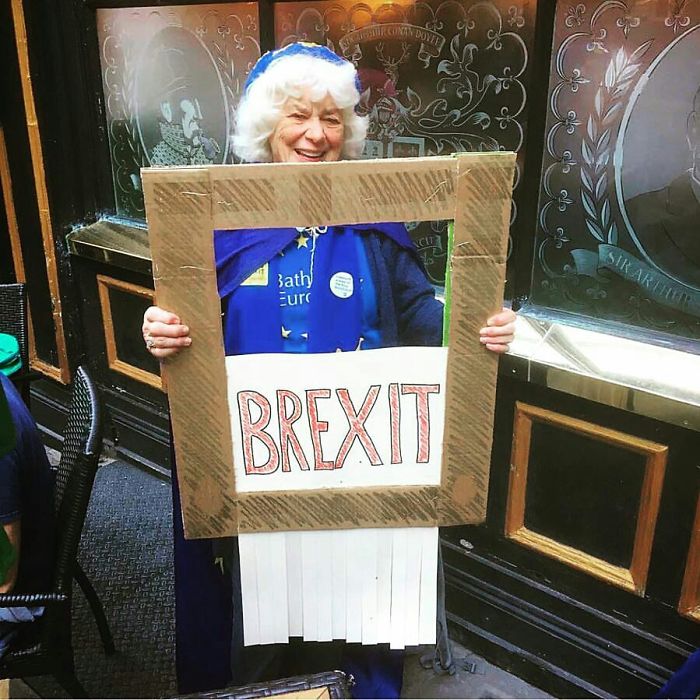 SIR ARTHUR CONAN DOYLE
Bath
Euro
BREXIT
SIR ARTHUR